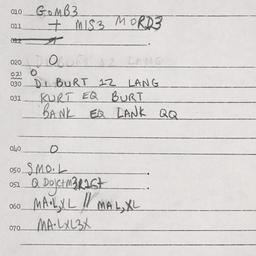 010 GOMB3
011 + MIS3 MORD3
012
020 O
021 O
030 DI BURT 12 LANG
031 KURT EQ BURT
BANK EQ LANK QQ
040 O
050 SMO.L
051
060 MA.L,XL // MAL,XL
070 MA.LXL3X